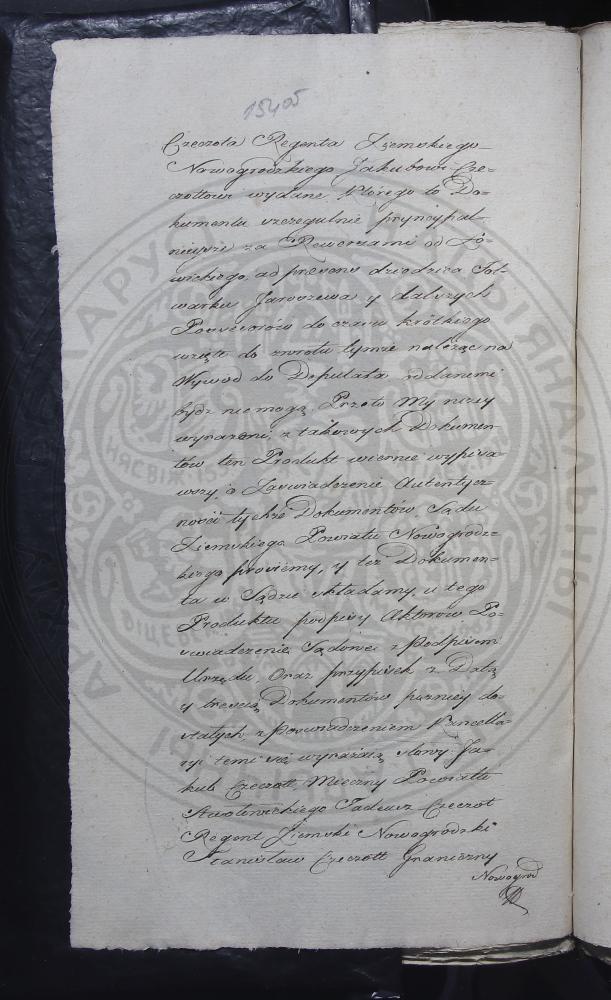 15405
Czeczota Regenta Ziemskiego
Nowogrodzkiego Jakubowi Cze-
czottowi wydane, którego to Do-
kumentu szczegulnie pryncypal-
nieysze za Rewersami od
wickiego, ad præsens dziedzica Fol-
warku Jaroszewa y dalszych
Possessorów do czasu krótkiego
wzięte do zwrotu tymże należąc na
Wywód do Deputata oddanemi
bydź nie mogą. Przeto My niżey
wyrażeni, z takowych Dokumen-
tów ten Produkt wiernie wypisa-
wszy, o Zaswiadczenie Autentycz-
ności tychże Dokumentów Sądu
Ziemskiego Powiatu Nowogrodz-
kiego prosiemy, y też Dokumen-
ta w Sądzie składamy, u tego
Produktu podpisy Aktorow Po-
swiadczenie Sądowe z Podpisem
Urzędu, Oraz przypisek z Datą
y treścią Dokumentów pozniey do-
stałych z Poswiadczeniem Kancella-
ryi temi się wyrażaią słowy: Ja-
kub Czeczott Mieczny Powiatu
Starodowickiego Tadeusz Czeczot
Regent Ziemski Nowogrodzki
Stanisław Czeczott Graniczny
Nowogrod